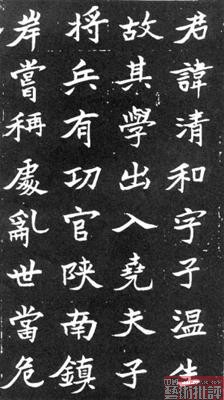 君諱清和字子温生
故其學出入堯夫子
將兵有功官陝南鎮
岸嘗稱處亂世當危
藝術批評